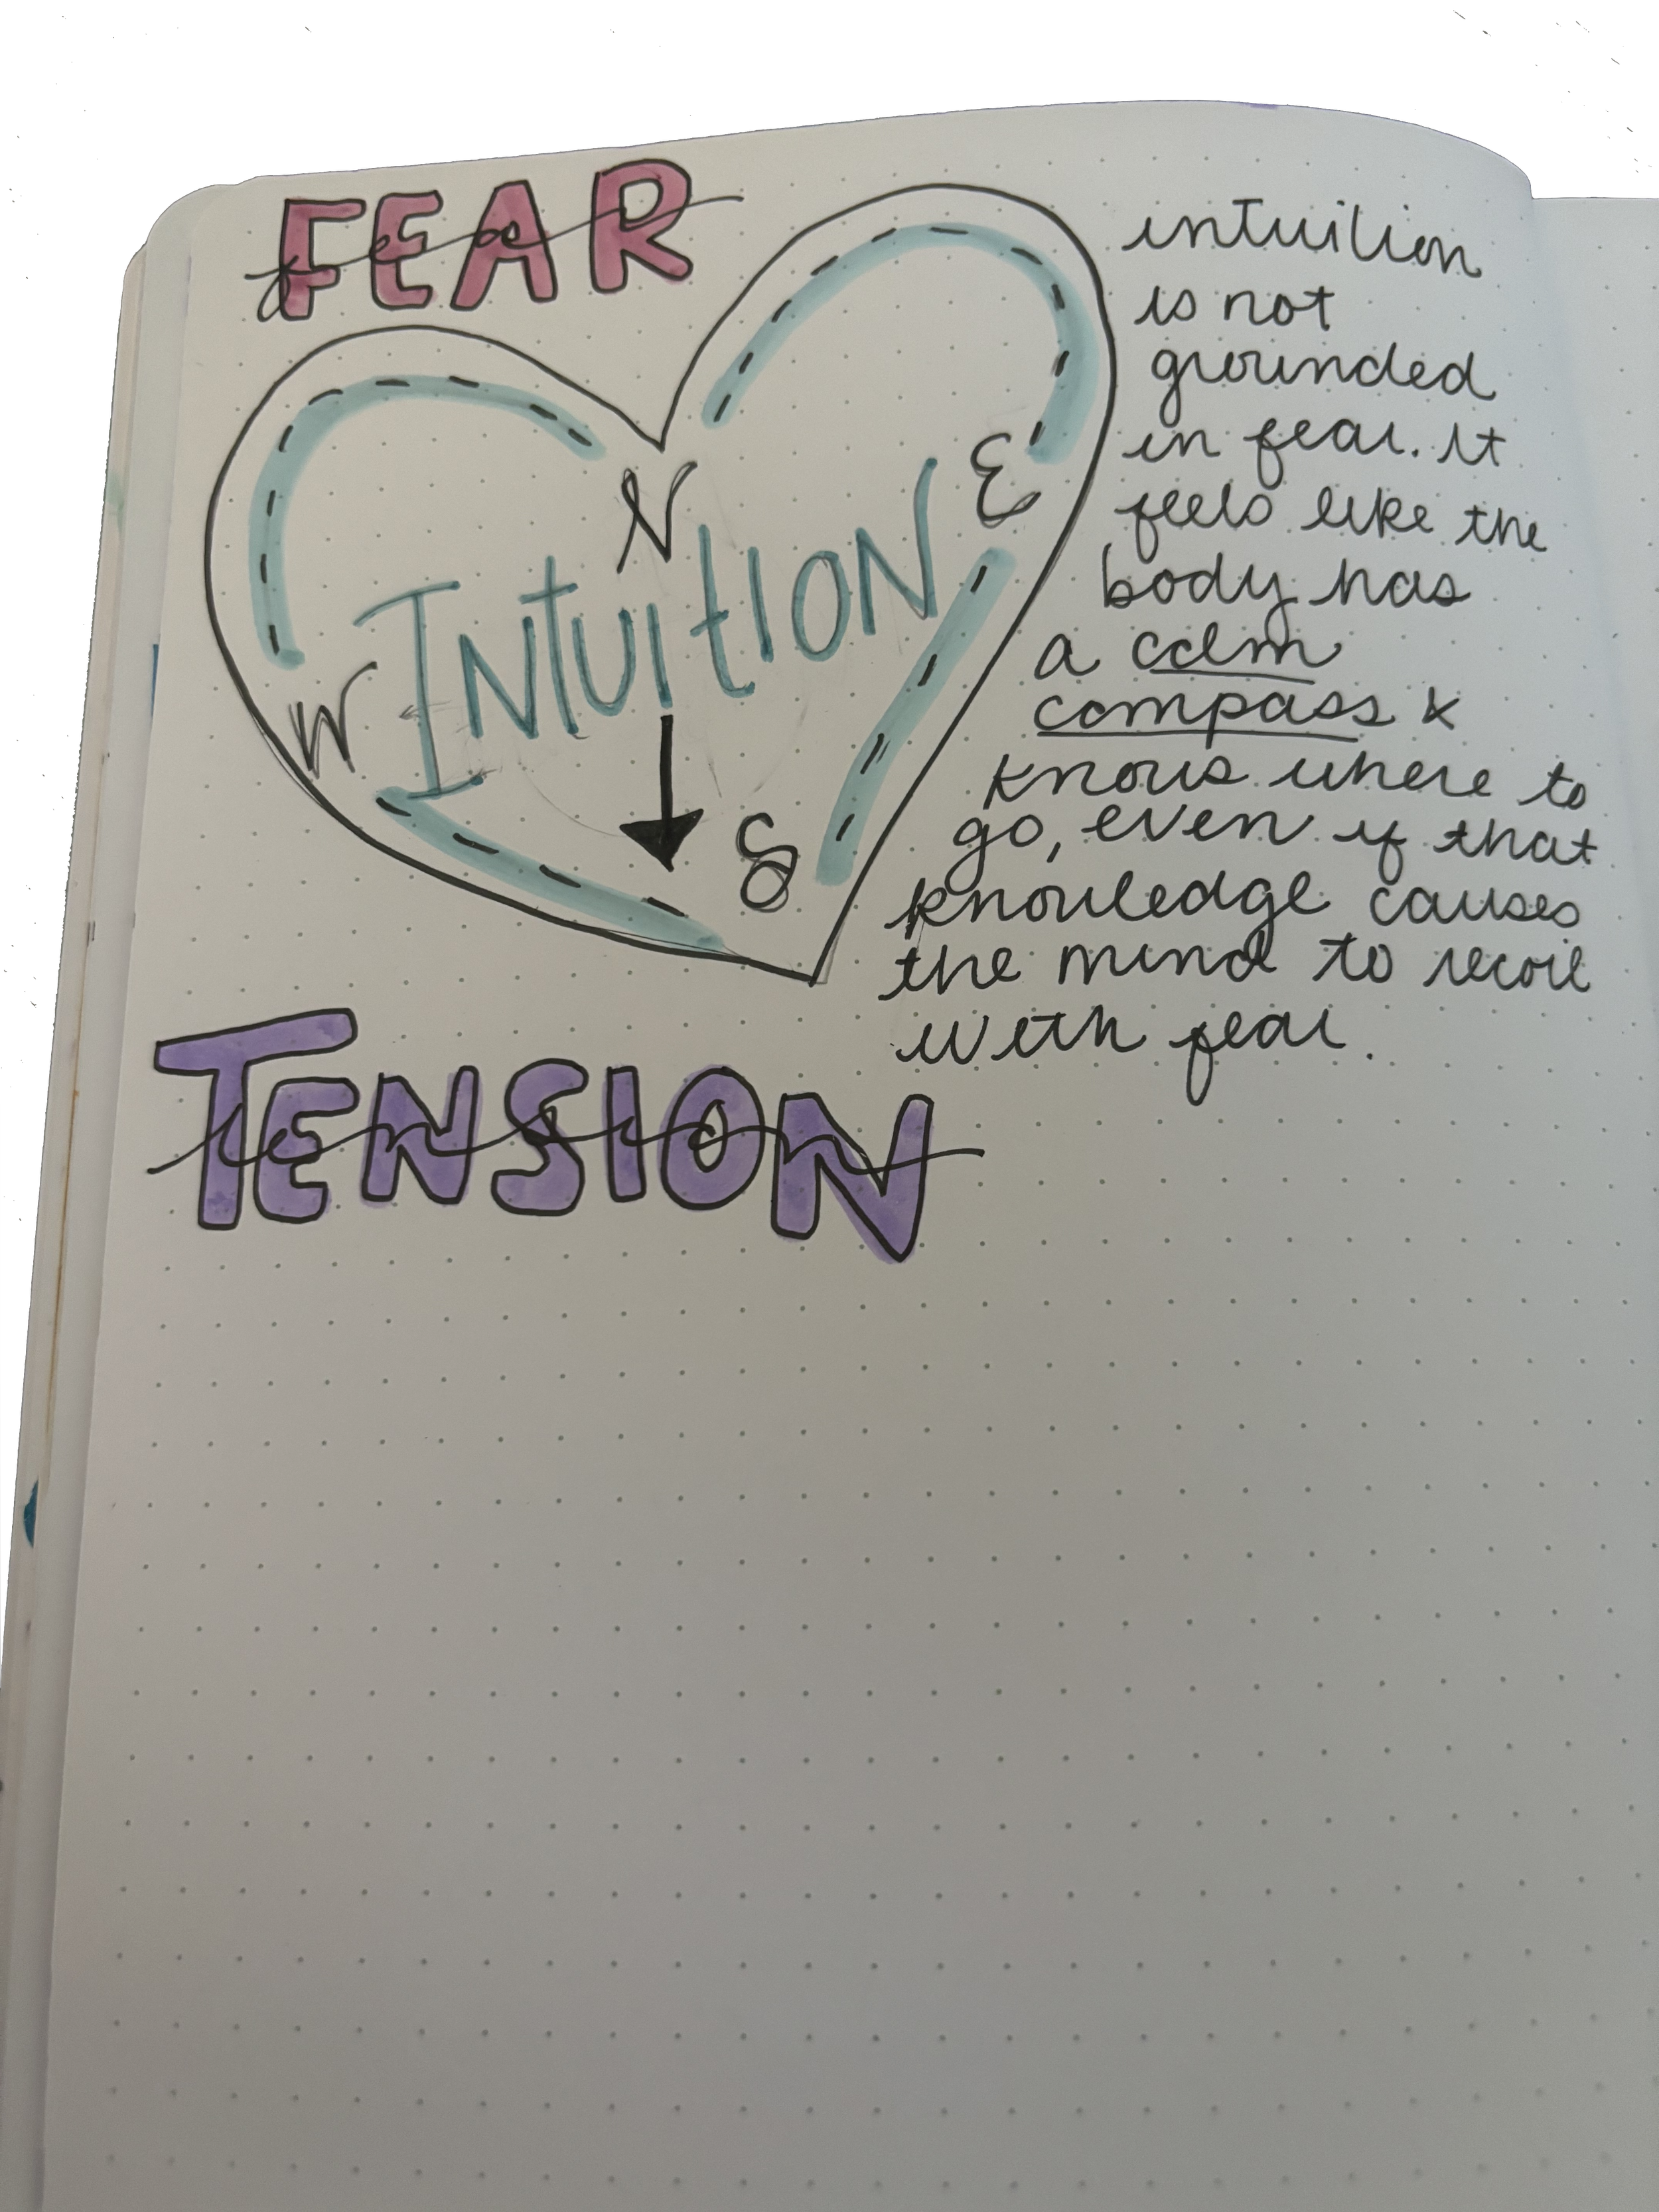 FEAR
fear
N
E
INTUITION
W
S
TENSION
tension
intuition
is not
grounded
in fear. It
feels like the
body has
a calm
compass &
knows where to
go, even if that
knowledge causes
the mind to recoil
with fear.